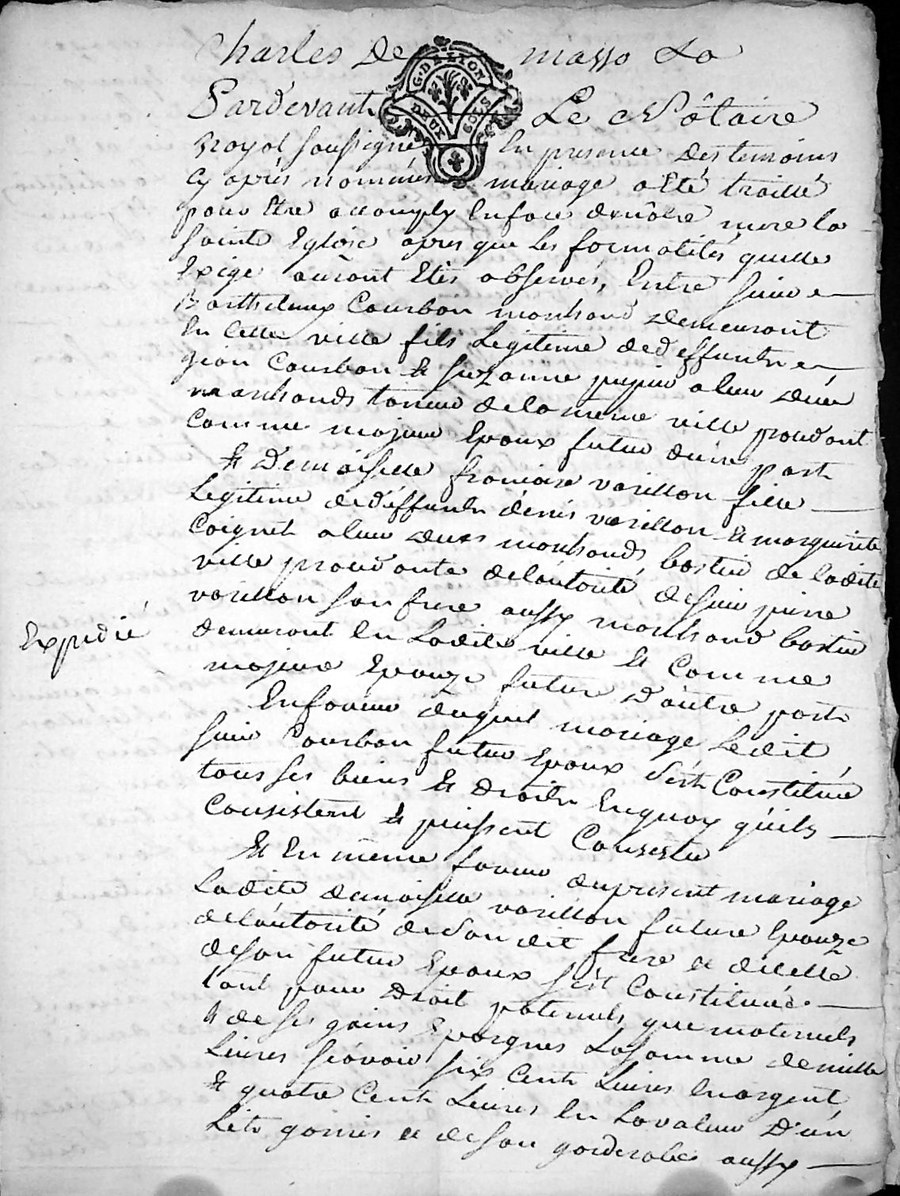 Charles De masso La
G. DE LYON
DEUX SOLS
Pardevant Le Nôtaire
Royal soussigné En presence des temoins
cy après nommés mariage a eté traitté
pour Etre accomply En face de nôtre mere la
sainte Eglise apres que les formalités quelle
Exige auront Etés observés, Entre sieur
Barthelemy Courbon marchand demeurant
En cette ville fils Legitime de deffunts
jean Courbon & suzanne a leur vivant
marchands de la même ville procedant
comme majeur Epoux futur d'une part
& Demoiselle francoise varillon fille
Legitime de deffunts denis varillon & marguerite
Coignet a leur vivant marchands de ladite
ville procedante de l'autorité de sieur pierre
varillon son frere aussy marchand
demeurant En Ladite ville & Comme
Expedié
majeure Epouze future D'autre part
En faveur duquel mariage Ledit
sieur Courbon futur Epoux s'est Constitué
tous ses biens & Droits En quoy qu'ils
Consistent & puissent Consister
Et En même faveur du present mariage
Ladite demoiselle varillon future Epouze
de l'autorité de Son dit frere et d'icelle
de son futur Epoux s'est Constituée
tant pour Droits paternels que maternels
& de ses gains Epargnes La somme de mille
Livres sçavoir six Cents Livres En argent
& quatre Cents Livres En La valeur D'un
Lit garnis et de son garderobe aussy